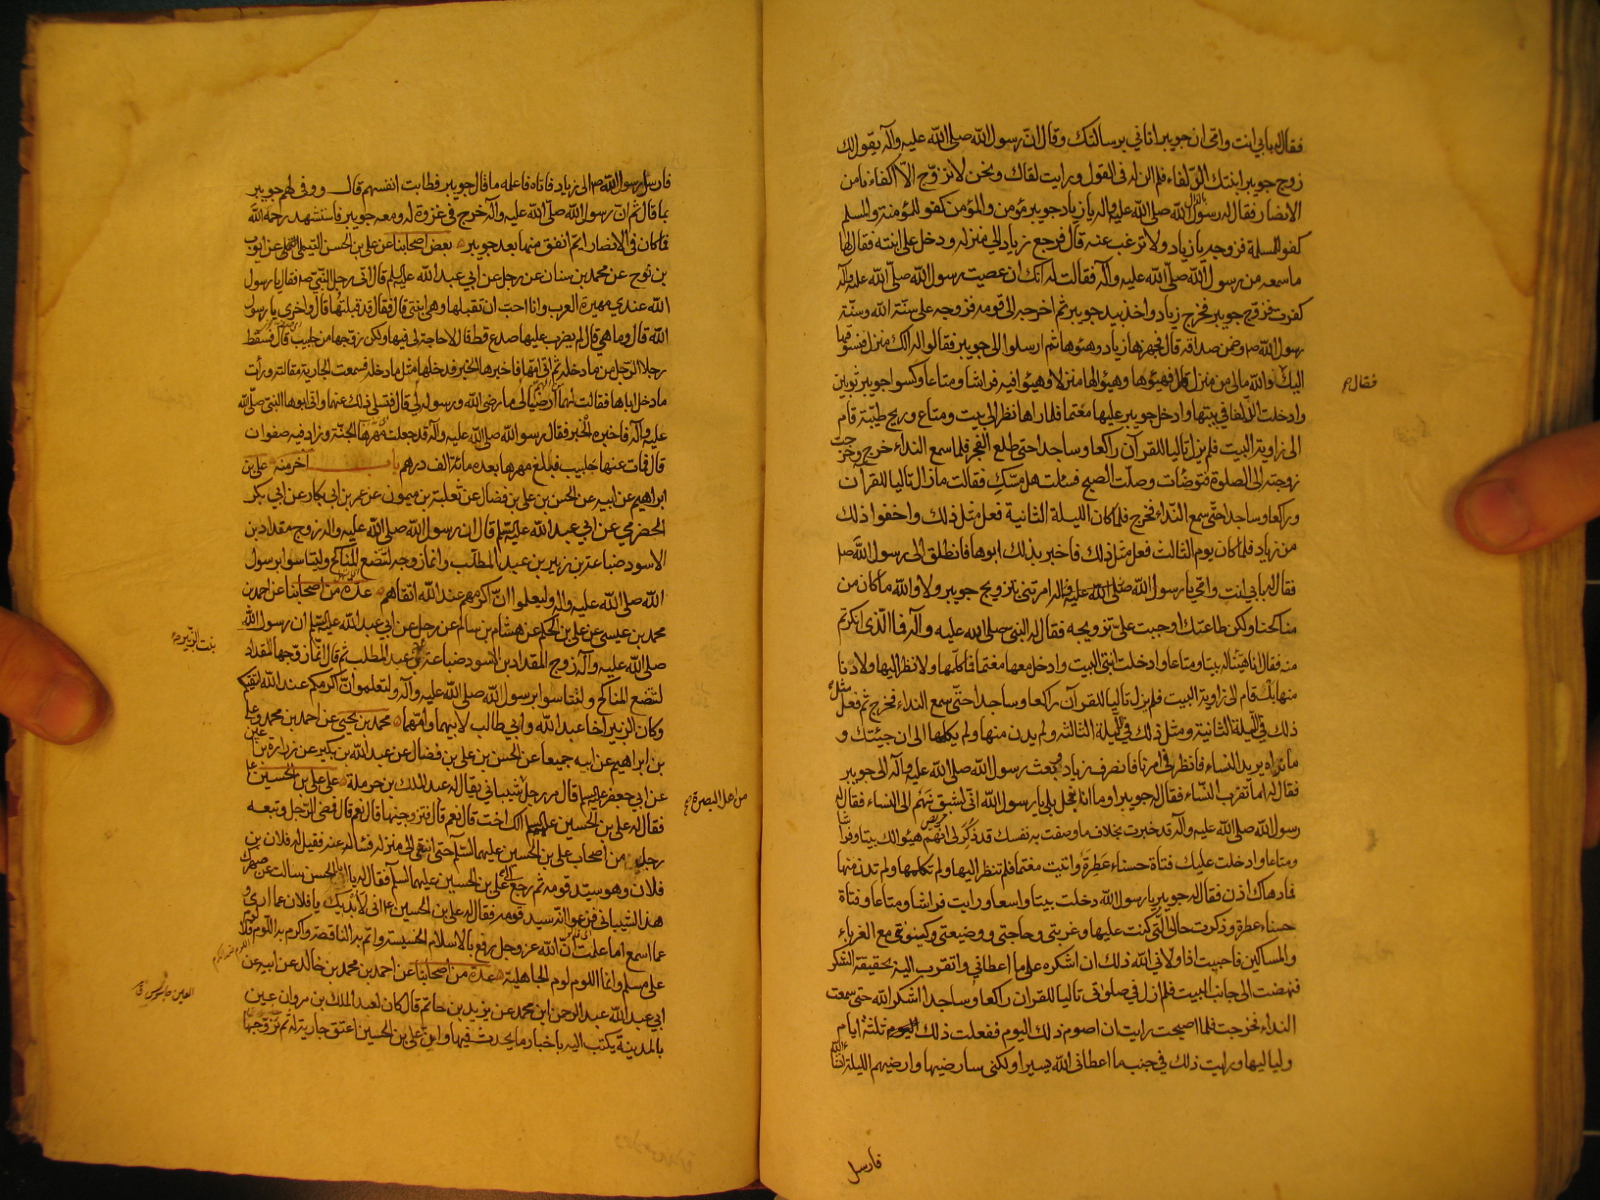 فقال له بابي انت وامي ان جويبرا اتاني برسالتك وقال ان رسول الله صلى الله عليه وآله يقول لك
زوج جويبرا ابنتك الذلفاء فلم الن له في القول ورايت لقاك ونحن لا نزوج الا اكفاءنا من
الانصار فقال له رسول الله صلى الله عليه واله يا زياد جويبر مؤمن والمؤمن كفو للمؤمنة والمسلم
كفو للمسلمة فزوجه يا زياد ولا ترغب عنه قال فرجع زياد الى منزله ودخل على ابنته فقال لها
ما سمعه من رسول الله صلى الله عليه وآله فقالت له انك ان عصيت رسول الله صلى الله عليه وآله
كفرت فزوج جويبر فخرج زياد واخذ بيد جويبر ثم اخرجه الى قومه فزوجه على سنة الله وسنة
رسول الله ص وضمن صداقه قال فجهزها زياد وهيئوها ثم ارسلوا الى جويبر فقالوا له الك منزل فنسوقها
اليك والله مالي من منزل قال فهيئوها وهيئوا لها منزلا وهيئوا فيه فراشا ومتاعا وكسوا جويبر ثوبين
فقال
وادخلت الذلفاء في بيتها وادخل جويبر عليها مغتما فلما راها نظر الى بيت ومتاع وريح طيبة قام
الى زاوية البيت فلم يزل تاليا للقرآن راكعا وساجدا حتى طلع الفجر فلما سمع النداء خرج وخرجت
زوجته الى الصلوة فتوضأت وصلت الصبح فسئلت هل مسك فقالت ما زال تاليا للقرآن
وراكعا وساجدا حتى سمع النداء فخرج فلما كان الليلة الثانية فعل مثل ذلك واخفوا ذلك
من زياد فلما كان يوم الثالث فعل مثل ذلك فاخبر بذلك ابوها فانطلق الى رسول الله ص
فقال له بابي انت وامي يا رسول الله صلى الله عليه وآله امرتني بتزويج جويبر ولا والله ما كان من
مناكحنا ولكن طاعتك اوجبت علي تزويجه فقال له النبي صلى الله عليه وآله فما الذي انكرتم
منه فقال انا هيئنا له بيتا ومتاعا وادخلت ابنتي البيت وادخل معها مغتما فما كلمها ولا نظر اليها ولا دنا
منها بل قام الى زاوية البيت فلم يزل تاليا للقرآن راكعا وساجدا حتى سمع النداء فخرج ثم فعل مثل
ذلك في الليلة الثانية ومثل ذلك في الليلة الثالثة ولم يدن منها ولم يكلمها الى ان جئتك و
ما نراه يريد النساء فانظر في امرنا فانصرف زياد وبعث رسول الله صلى الله عليه وآله الى جويبر
فقال له اما تقرب النساء فقال له جويبر او ما انا بفحل بلى يا رسول الله اني لشبق نهم الى النساء فقال له
رسول الله صلى الله عليه وآله قد خبرت بخلاف ما وصفت به نفسك قد ذكر لي انهم هيئوا لك بيتا وفراشا
ومتاعا وادخلت عليك فتاة حسناء عطرة واتيت مغتما فلم تنظر اليها ولم تكلمها ولم تدن منها
فما دهاك اذن فقال له جويبر يا رسول الله دخلت بيتا واسعا ورايت فراشا ومتاعا وفتاة
حسناء عطرة وذكرت حالي التي كنت عليها وغربتي وحاجتي ووضيعتي وكينونتي مع الغرباء
والمساكين فاحببت اذ اولاني الله ذلك ان اشكره على ما اعطاني واتقرب اليه بحقيقة الشكر
فنهضت الى جانب البيت فلم ازل في صلوتي تاليا للقران راكعا وساجدا اشكر الله حتى سمعت
النداء فخرجت فلما اصبحت رايت ان اصوم ذلك اليوم ففعلت ذلك ثلثة ايام
ولياليها ورايت ذلك في جنب ما اعطاني الله يسيرا ولكني سارضيها وارضيهم الليلة انشاء الله
فارسل
فارسل رسول الله ص الى زياد فاتاه فاعلمه ما قال جويبر فطابت انفسهم قال ووفى لهم جويبر
بما قال ثم ان رسول الله صلى الله عليه وآله خرج في غزوة له ومعه جويبر فاستشهد رحمه الله
فما كان في الانصار ايم انفق منها بعد جويبر بعض اصحابنا عن علي بن الحسن التيملي عن ايوب
بن نوح عن محمد بن سنان عن رجل عن ابي عبد الله عليه السلم قال اتى رجل النبي ص فقال يا رسول
الله عندي مهيرة العرب وانا احب ان تقبلها وهي ابنتي قال فقال قد قبلتها قال واخرى يا رسول
الله قال وما هي قال لم يضرب عليها صدع قط قال لا حاجة لي فيها ولكن زوجها من جلبيب قال فسقط
رجلا الرجل مما دخله ثم اتى امها فاخبرها الخبر فدخلها مثل ما دخله فسمعت الجارية مقالته ورأت
ما دخل اباها فقالت لهما ارضيا لي ما رضي الله ورسوله لي قال فتسلى ذلك عنهما واتى ابوها النبي صلى الله
عليه وآله فاخبره الخبر فقال رسول الله صلى الله عليه وآله قد جعلت مهرها الجنة وزاد فيه صفوان
قال فمات عنها جلبيب فبلغ مهرها بعده مائة الف درهم باب اخر منه علي بن
ابراهيم عن ابيه عن الحسن بن علي بن فضال عن ثعلبة بن ميمون عن عمر بن ابي بكار عن ابي بكر
الحضرمي عن ابي عبد الله عليه السلم قال ان رسول الله صلى الله عليه واله زوج مقداد بن
الاسود ضباعة بن زبير بن عبد المطلب وانما زوجه لتتضع المناكح وليتاسوا برسول
الله صلى الله عليه واله وليعلموا ان اكرمهم عند الله اتقاهم عدة من اصحابنا عن احمد بن
محمد بن عيسى عن علي بن الحكم عن هشام بن سالم عن رجل عن ابي عبد الله عليه السلم ان رسول الله
صلى الله عليه وآله زوج المقداد بن الاسود ضباعة بن عبد المطلب ثم قال انما زوجها المقداد
بنت الزبير
لتتضع المناكح ولتتاسوا برسول الله صلى الله عليه وآله ولتعلموا ان اكرمكم عند الله اتقيكم
وكان الزبير اخا عبد الله وابي طالب لابيهما وامهما محمد بن يحيى عن احمد بن محمد وعلي
بن ابراهيم عن ابيه جميعا عن الحسن بن علي بن فضال عن عبد الله بن بكير عن زرارة بن اعين
عن ابي جعفر عليه السلم قال مر رجل شيباني يقال له عبد الملك بن حرملة على علي بن الحسين
من اهل البصرة
فقال له علي بن الحسين عليه السلم الك اخت قال نعم قال فتزوجنيها قال نعم قال فمضى الرجل وتبعه
رجل من اصحاب علي بن الحسين عليهما السلم حتى انتهى الى منزله فسال عنه فقيل له فلان بن
فلان وهو سيد قومه ثم رجع الى علي بن الحسين عليهما السلم فقال له يا ابا الحسن سالت عن صهرك
هذا الشيباني فزعموا انه سيد قومه فقال له علي بن الحسين اني لابديك يا فلان عما ارى و
عما اسمع اما علمت ان الله عز وجل رفع بالاسلام الخسيسة واتم به الناقصة واكرم به اللوم فلا لوم
على مسلم وانما اللوم لوم الجاهلية عدة من اصحابنا عن احمد بن محمد بن خالد عن ابيه عن
ابي عبد الله عبد الرحمن ابن محمد عن يزيد بن حاتم قال كان لعبد الملك بن مروان عين
العين جاسوس
بالمدينة يكتب اليه باخبار ما يحدث فيها وان علي بن الحسين اعتق جارية له ثم تزوجها